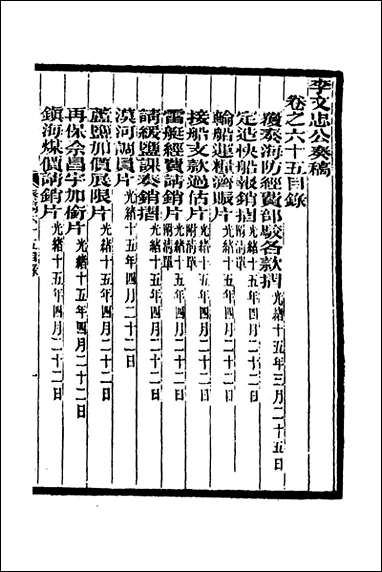 李文忠公奏稿
卷之六十五目錄
覆奏海防經費部駁各款摺光緒十五年三月二十五日
定造快船報銷摺附清單光緒十五年四月二十二日
輪船運糧濟賑片光緒十五年四月二十二日
接船支款過估片附清單光緒十五年四月二十二日
雷艇經費請銷片附清單光緒十五年四月二十二日
請緩鹽課奏銷摺光緒十五年四月二十二日
漠河調員片光緒十五年四月二十二日
蘆鹽加價展限片光緒十五年四月二十二日
再保余昌宇加銜片光緒十五年四月二十二日
鎮海煤價請銷片光緒十五年四月二十二日